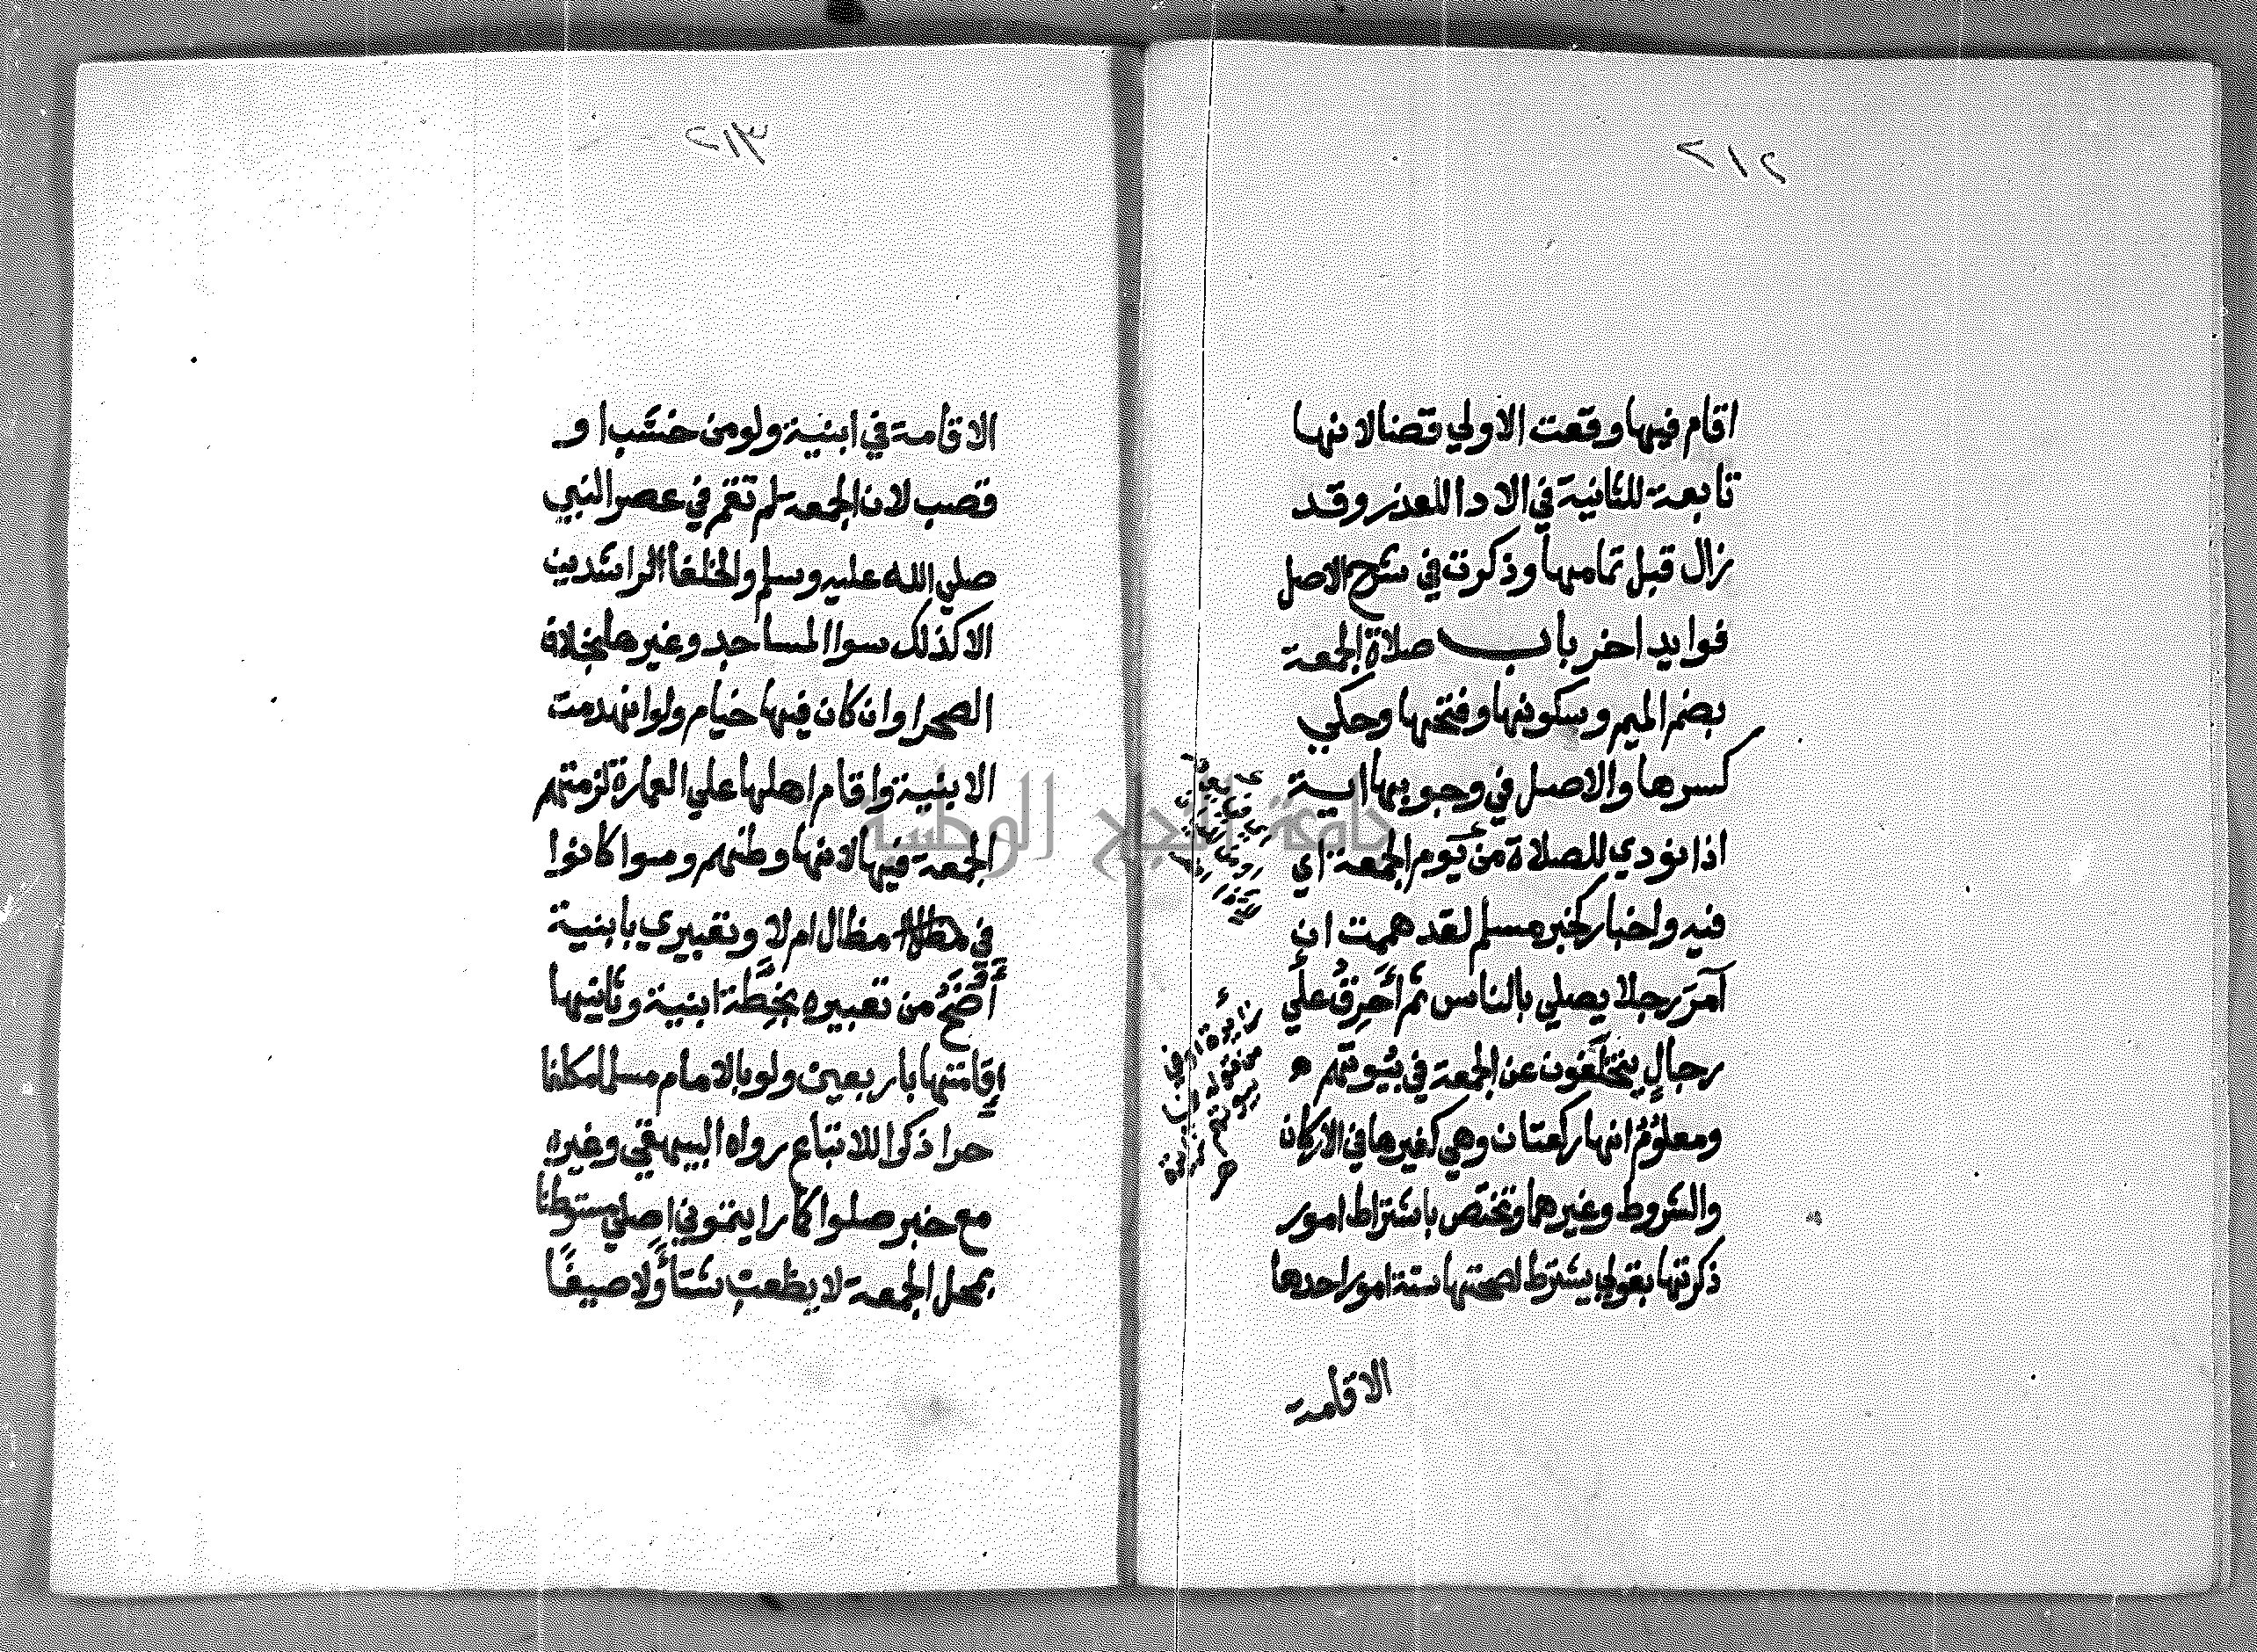 ٢١٢
اقام فيها وقعت الاولي قضا لانها
تابعة للثانية في الادا للعذر وقد
زال قبل تمامها وذكرت في شرح الاصل
فوايد اخر باب صلاة الجمعة
بضم الميم وسكونها وفتحها وحكي
كسرها والاصل في وجوبها اية
اذا نودي للصلاة من يوم الجمعة اي
فيه واخبار كخبر مسلم لقد هممت ان
آمر رجلا يصلي بالناس ثم أحرق علي
رجال يتخلفون عن الجمعة في بيوتهم ه
ومعلوم انها ركعتان وهي كغيرها في الاركان
والشروط وغيرهما وتختص باشتراط امور
ذكرتها بقولي يشترط لصحتها ستة امور احدها
الاقامة
٢١٣
الاقامة في ابنية ولو من خشب او
قصب لان الجمعة لم تقم في عصر النبي
صلي الله عليه وسلم والخلفا الراشدين
الا كذلك سوا المساجد وغيرها بخلاف
الصحرا وان كان فيها خيام ولو انهدمت
الابنية واقام اهلها علي العمارة لزمتهم
الجمعة فيها لانها وطنهم وسوا كانوا
في مظال ام لا وتعبيري بابنية
أوضح من تعبيره بخطة ابنية وثانيها
اقامتها باربعين ولو بالامام مسلما مكلفا
حرا ذكرا للاتباع رواه البيهقي وغيره
مع خبر صلوا كما رايتموني اصلي مستوطنا
بمحل الجمعة لا يظعن شتأ ولا صيفًا
جامعة النجاح الوطنية